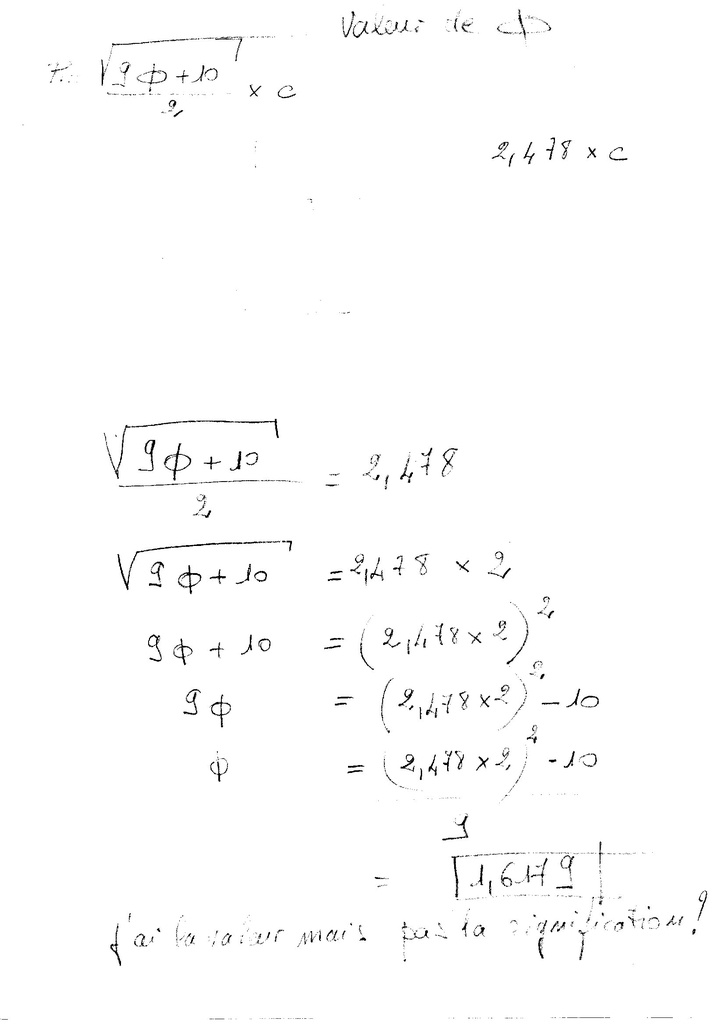 Valeur de Φ
√(9Φ+10)/2 × c
2,478 × c
√(9Φ+10)/2 = 2,478
√(9Φ+10) = 2,478 × 2
9Φ + 10 = (2,478 × 2)²
9Φ = (2,478 × 2)² - 10
Φ = (2,478 × 2)² - 10
9
= 1,6179
J'ai la valeur mais pas la signification !